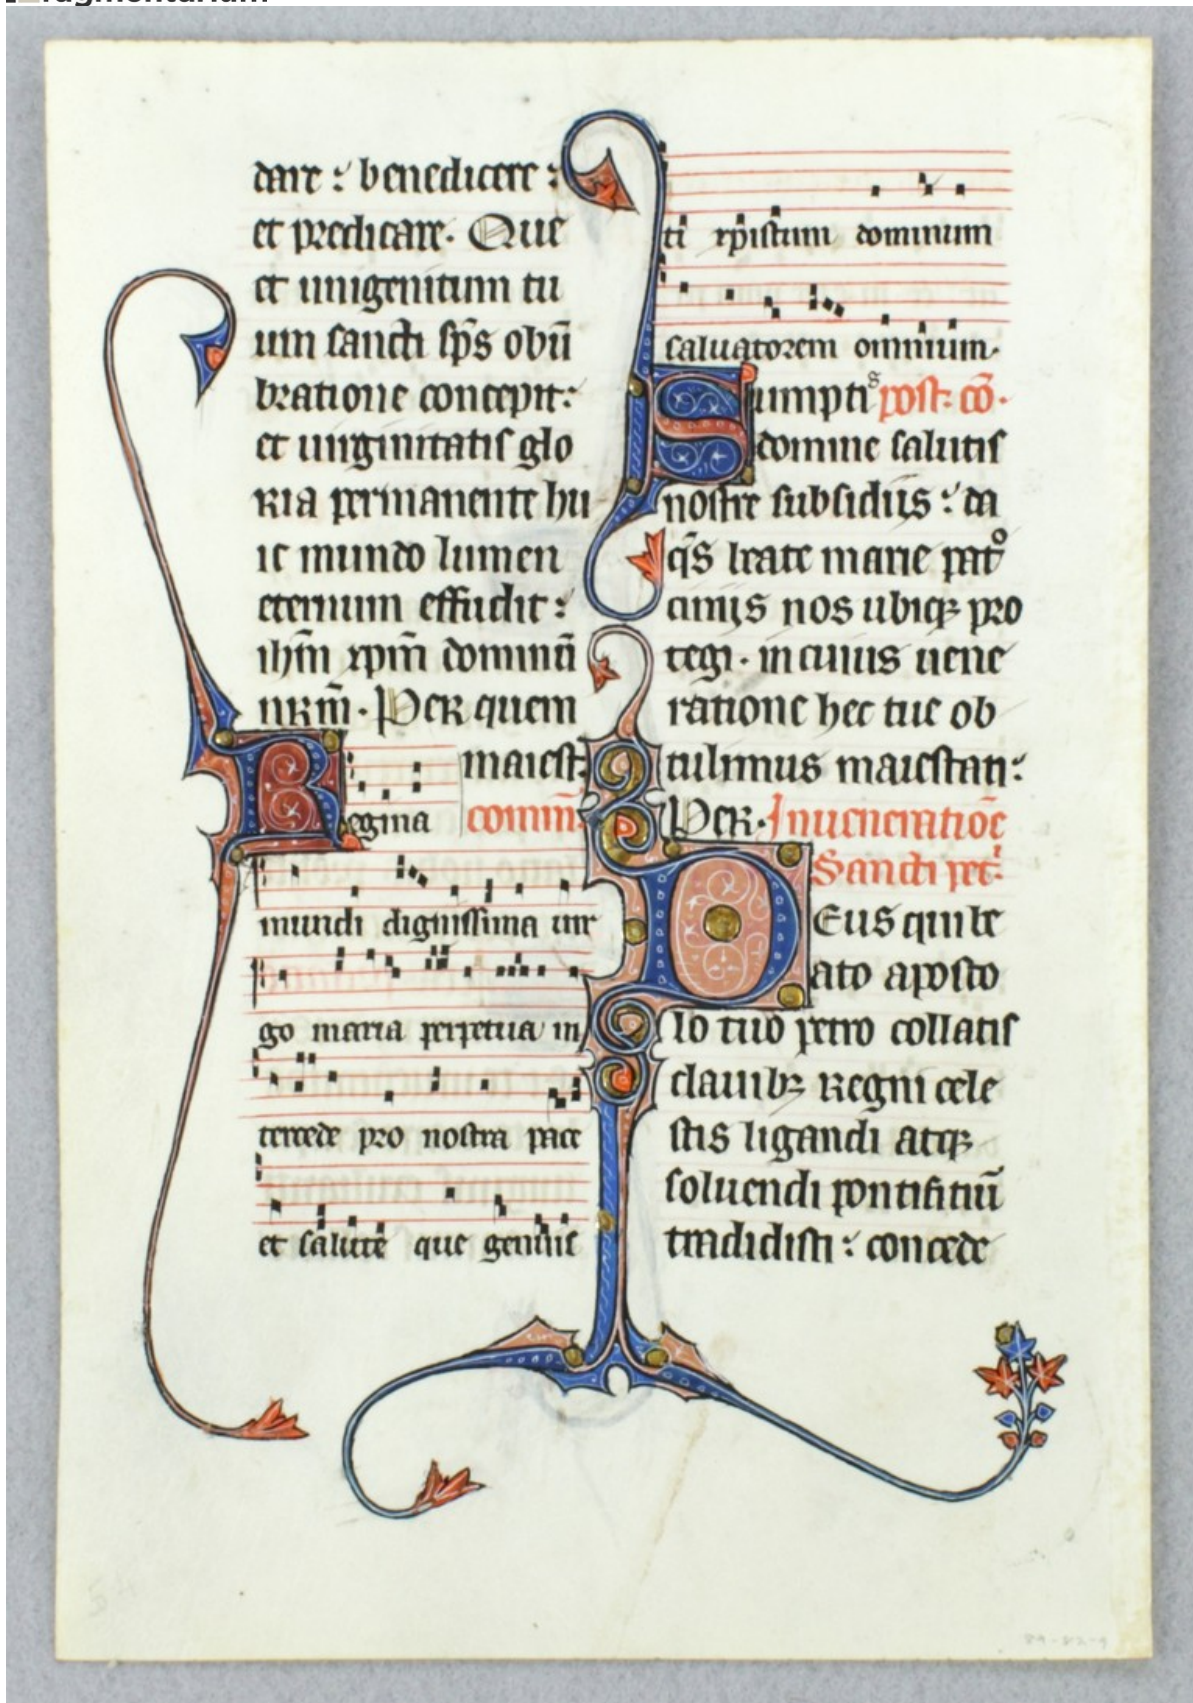 ragmentarium
dare : benedicere :
et predicare. Que
et unigenitum tu
um sancti sp̄s obū
bratione concepit:
et uirginitatis glo
ria permanente hu
ic mundo lumen
eternum effudit :
ihm̄ xpm̄ dominū
nrm̄. Per quem
maiest
Regina comm̄.
mundi dignissima uir
go maria perpetua in
tercede pro nostra pace
et salute que genuis
ti xpistum dominum
saluatorem omnium.
Sumptis post cō.
domine salutis
nostre subsidiis : da
qs̄ beate marie patro
ciniis nos ubiqꝫ pro
tegi. in cuius uene
ratione hec tue ob
tulimus maiestati:
Per. In ueneratiōe
Sancti pet
Deus qui be
ato aposto
lo tuo petro collatis
clauibꝫ regni cele
stis ligandi atqꝫ
soluendi pontifitiū
tradidisti : concede